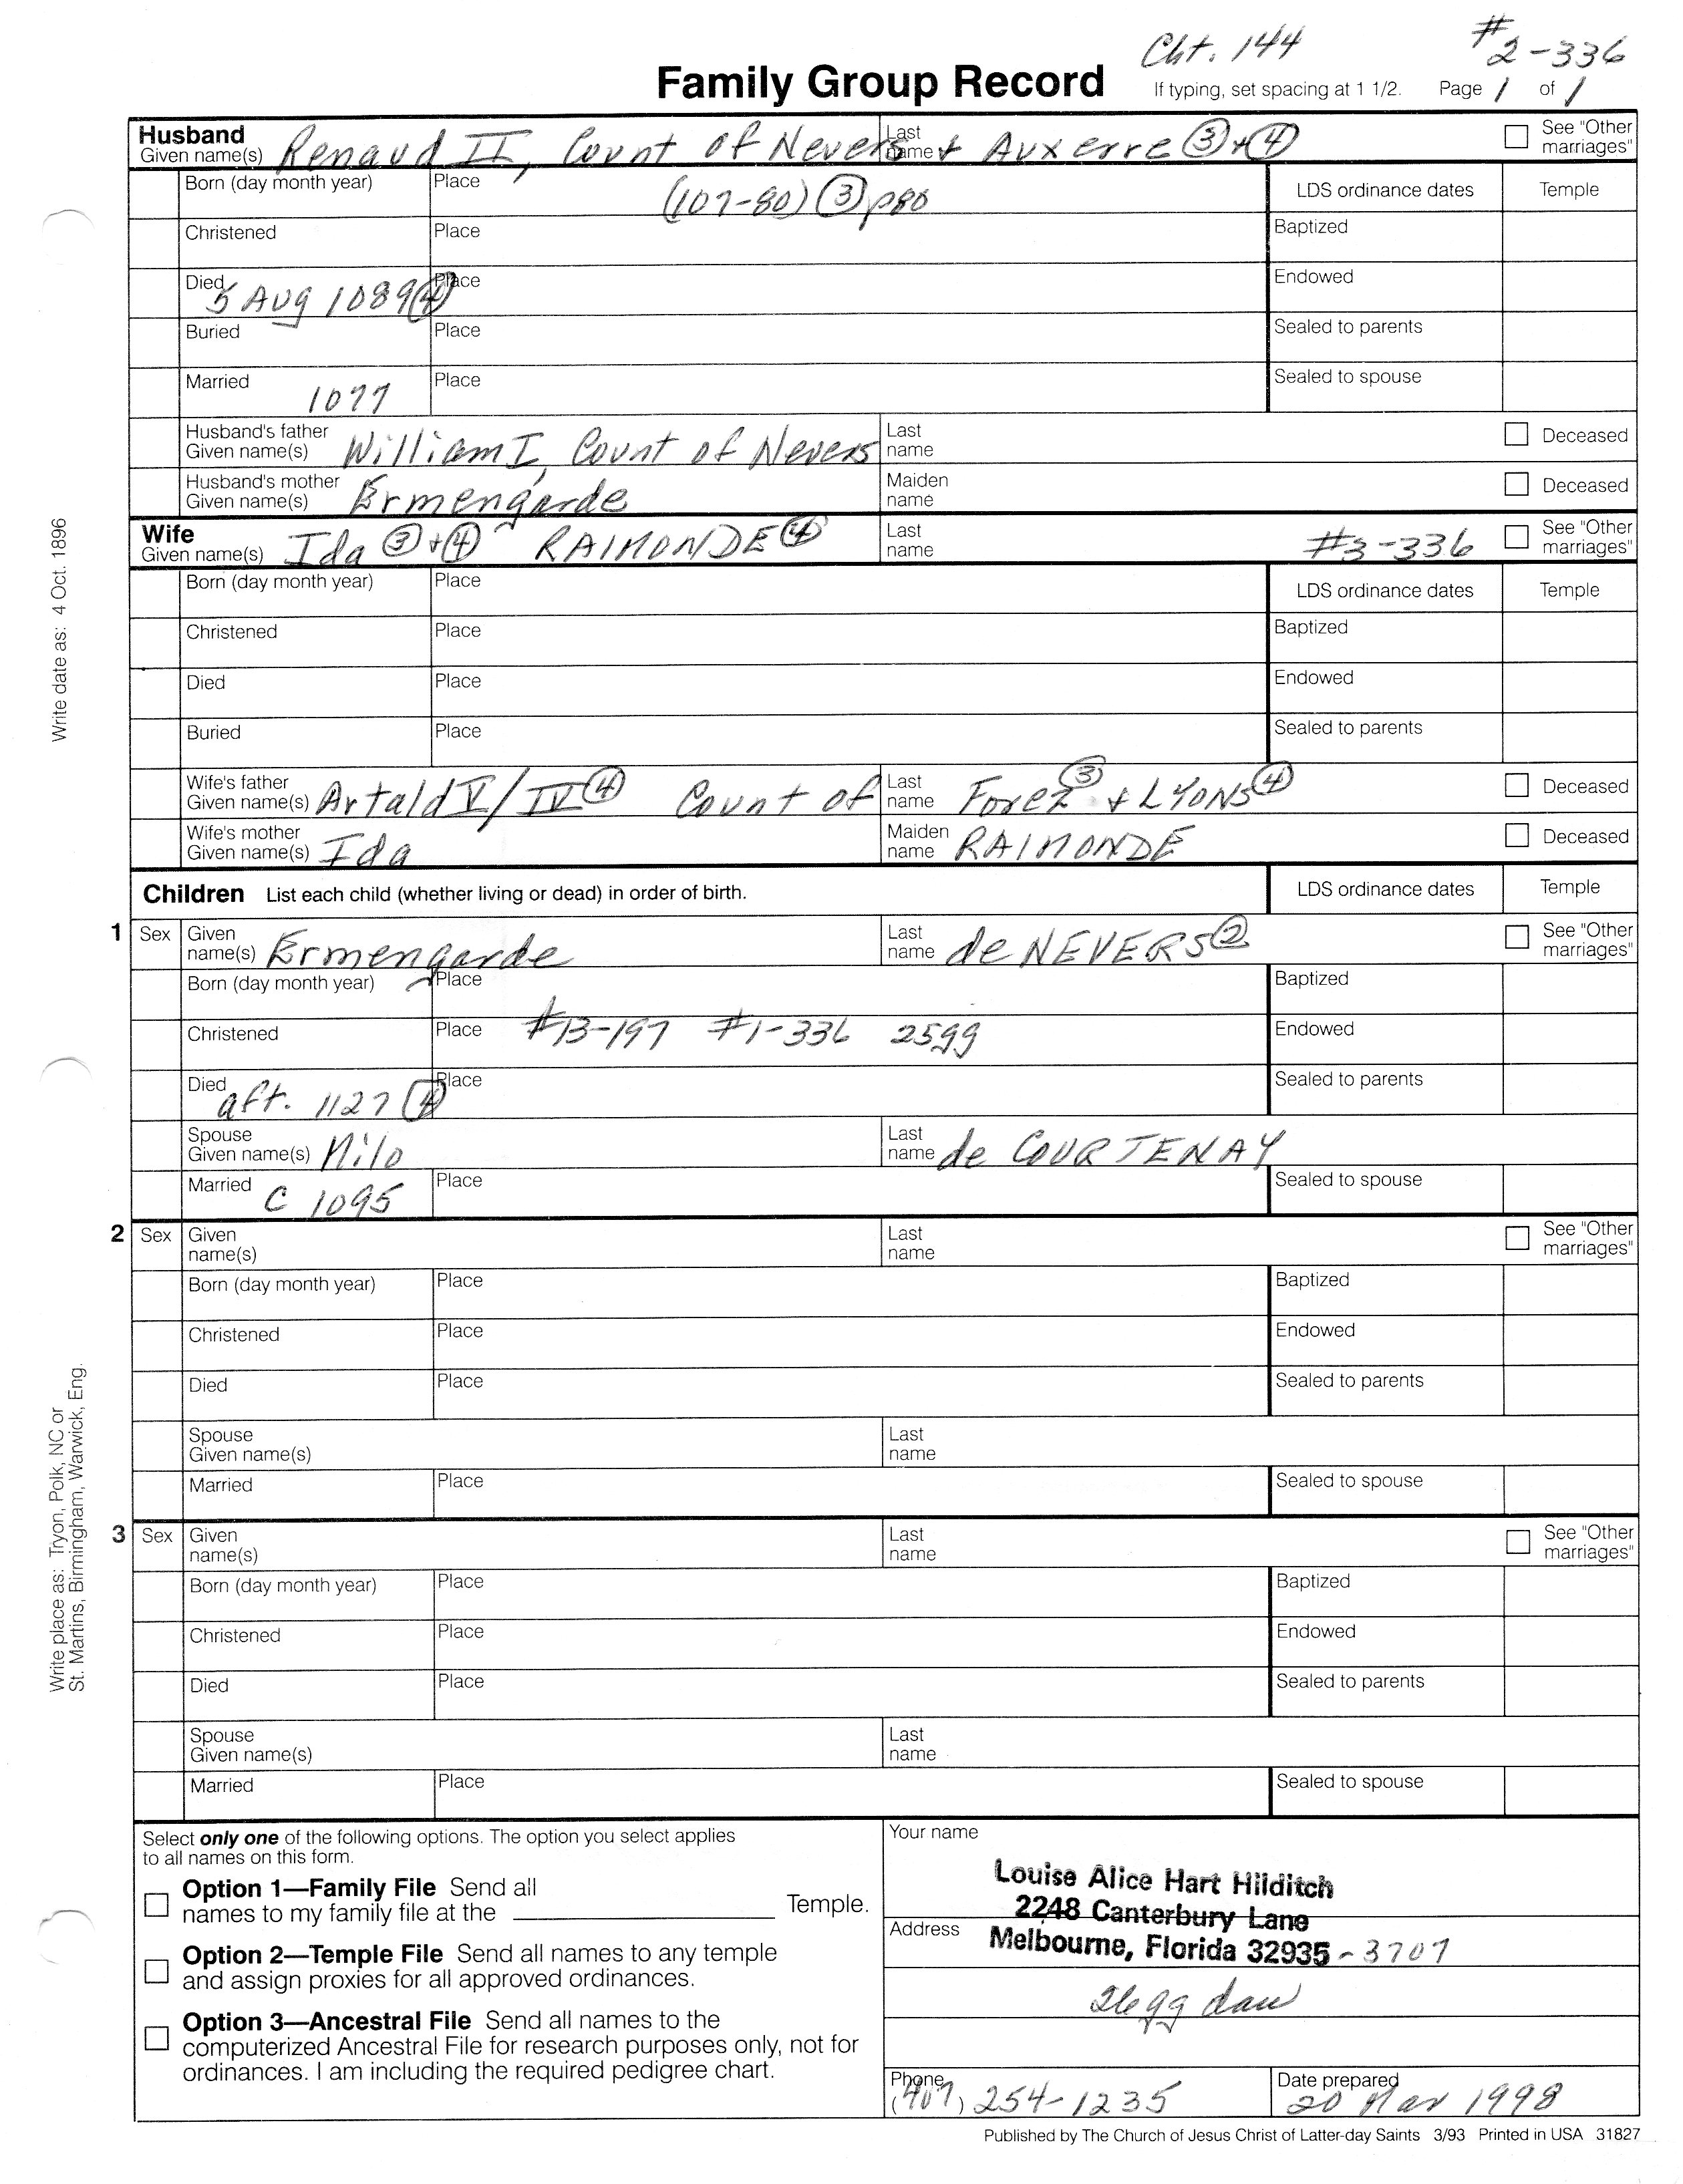 Cht. 144 #2-336
Family Group Record If typing, set spacing at 1 1/2. Page 1 of 1
Husband Given name(s) Renaud II, Count of Nevers Last name + Auxerre ③+④ See "Other marriages"
Born (day month year) Place (107-80) ③ p80 LDS ordinance dates Temple
Christened Place Baptized
Died 5 AUG 1089 ④ Place Endowed
Buried Place Sealed to parents
Married 1077 Place Sealed to spouse
Husband's father Given name(s) William I, Count of Nevers Last name Deceased
Husband's mother Given name(s) Ermengarde Maiden name Deceased
Wife Given name(s) Ida ③+④ RAIMONDE ④ Last name #3-336 See "Other marriages"
Born (day month year) Place LDS ordinance dates Temple
Christened Place Baptized
Died Place Endowed
Buried Place Sealed to parents
Wife's father Given name(s) Artald V/IV ④ Count of Last name Forez ③ + LYONS ④ Deceased
Wife's mother Given name(s) Ida Maiden name RAIMONDE Deceased
Children List each child (whether living or dead) in order of birth. LDS ordinance dates Temple
1 Sex Given name(s) Ermengarde Last name de NEVERS ② See "Other marriages"
Born (day month year) Place Baptized
Christened Place #13-197 #1-336 25gg Endowed
Died aft. 1127 4 Place Sealed to parents
Spouse Given name(s) Milo Last name de COURTENAY
Married C 1095 Place Sealed to spouse
2 Sex Given name(s) Last name See "Other marriages"
Born (day month year) Place Baptized
Christened Place Endowed
Died Place Sealed to parents
Spouse Given name(s) Last name
Married Place Sealed to spouse
3 Sex Given name(s) Last name See "Other marriages"
Born (day month year) Place Baptized
Christened Place Endowed
Died Place Sealed to parents
Spouse Given name(s) Last name
Married Place Sealed to spouse
Write date as: 4 Oct. 1896
Write place as: Tryon, Polk, NC or
St. Martins, Birmingham, Warwick, Eng.
Select only one of the following options. The option you select applies
to all names on this form.
Option 1—Family File Send all
names to my family file at the Temple.
Option 2—Temple File Send all names to any temple
and assign proxies for all approved ordinances.
Option 3—Ancestral File Send all names to the
computerized Ancestral File for research purposes only, not for
ordinances. I am including the required pedigree chart.
Your name
Louise Alice Hart Hilditch
2248 Canterbury Lane
Address Melbourne, Florida 32935-3707
26gg dau
Phone (407) 254-1235 Date prepared 20 Mar 1998
Published by The Church of Jesus Christ of Latter-day Saints 3/93 Printed in USA 31827